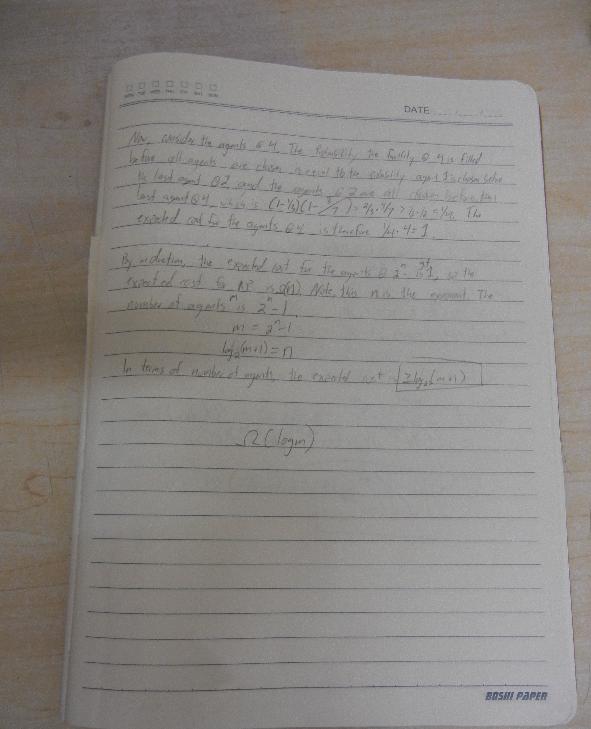 DATE
Now, consider the agents @ 4. The Probability the facility @ 4 is filled
before all agents are chosen is equal to the probability agent 1 is chosen before
the last agent @ 2 and the agents @ 2 are all chosen before the
last agent @ 4, which is (1-1/3)(1-
expected cost for the agents @ 4 is therefore 1/4 · 4 = 1.
By induction, the expected cost for the agents @ 2^n is 1, so the
expected cost for is Ω(n). Note, this n is the exponent. The
number of agents m is 2^n - 1.
m = 2^n - 1
log2(m+1) = n
In terms of number of agents, the expected cost log2(m+1)
Ω(log m)
BOSHI PAPER